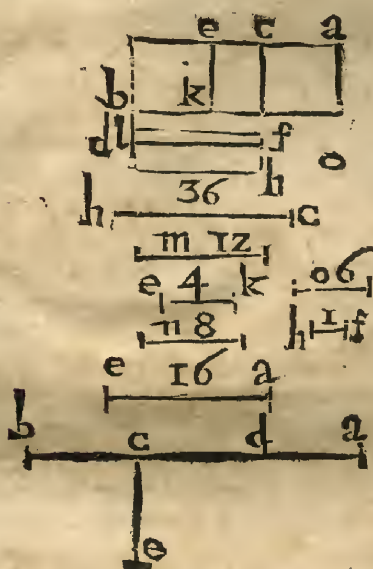 e c a
b k
d l f
h o
36
h c
m 12
e 4 k o 6
n 8 h 1 f
e 16 a
b c d a
e